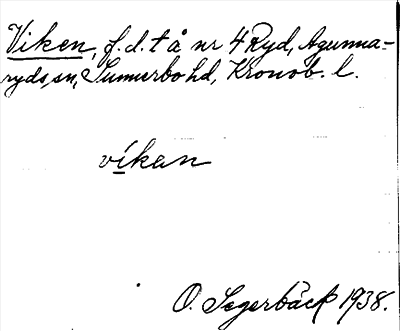 Viken, f.d. t å nr 4 Ryd, Agunna-
ryds sn, Sunnerbo hd, Kronob. l.
víkan
O. Segerbäck 1938.